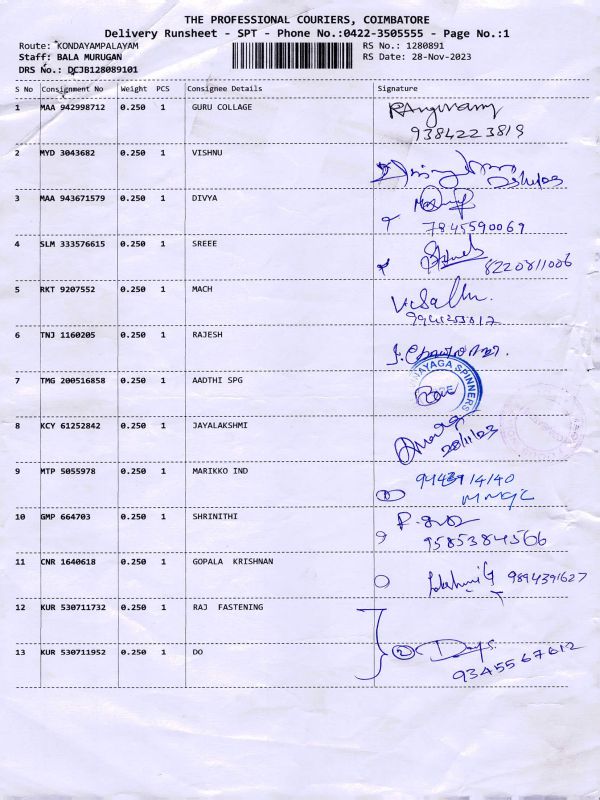 THE PROFESSIONAL COURIERS, COIMBATORE
Delivery Runsheet - SPT - Phone No.:0422-3505555 - Page No.:1
Route: KONDAYAMPALAYAM RS No.: 1280891
Staff: BALA MURUGAN RS Date: 28-Nov-2023
DRS No.: DCJB128089101
S No Consignment No Weight PCS Consignee Details Signature
1 MAA 942998712 0.250 1 GURU COLLAGE
9384223819
2 MYD 3043682 0.250 1 VISHNU
3 MAA 943671579 0.250 1 DIVYA
7845590069
4 SLM 333576615 0.250 1 SREEE
8220811006
5 RKT 9207552 0.250 1 MACH
6 TNJ 1160205 0.250 1 RAJESH
7 TMG 200516858 0.250 1 AADTHI SPG
NAYAGA SPINNERS
8 KCY 61252842 0.250 1 JAYALAKSHMI
28/11/23
9 MTP 5055978 0.250 1 MARIKKO IND
10 GMP 664703 0.250 1 SHRINITHI
9585384566
11 CNR 1640618 0.250 1 GOPALA KRISHNAN
9894391627
12 KUR 530711732 0.250 1 RAJ FASTENING
13 KUR 530711952 0.250 1 DO
2
9345567612